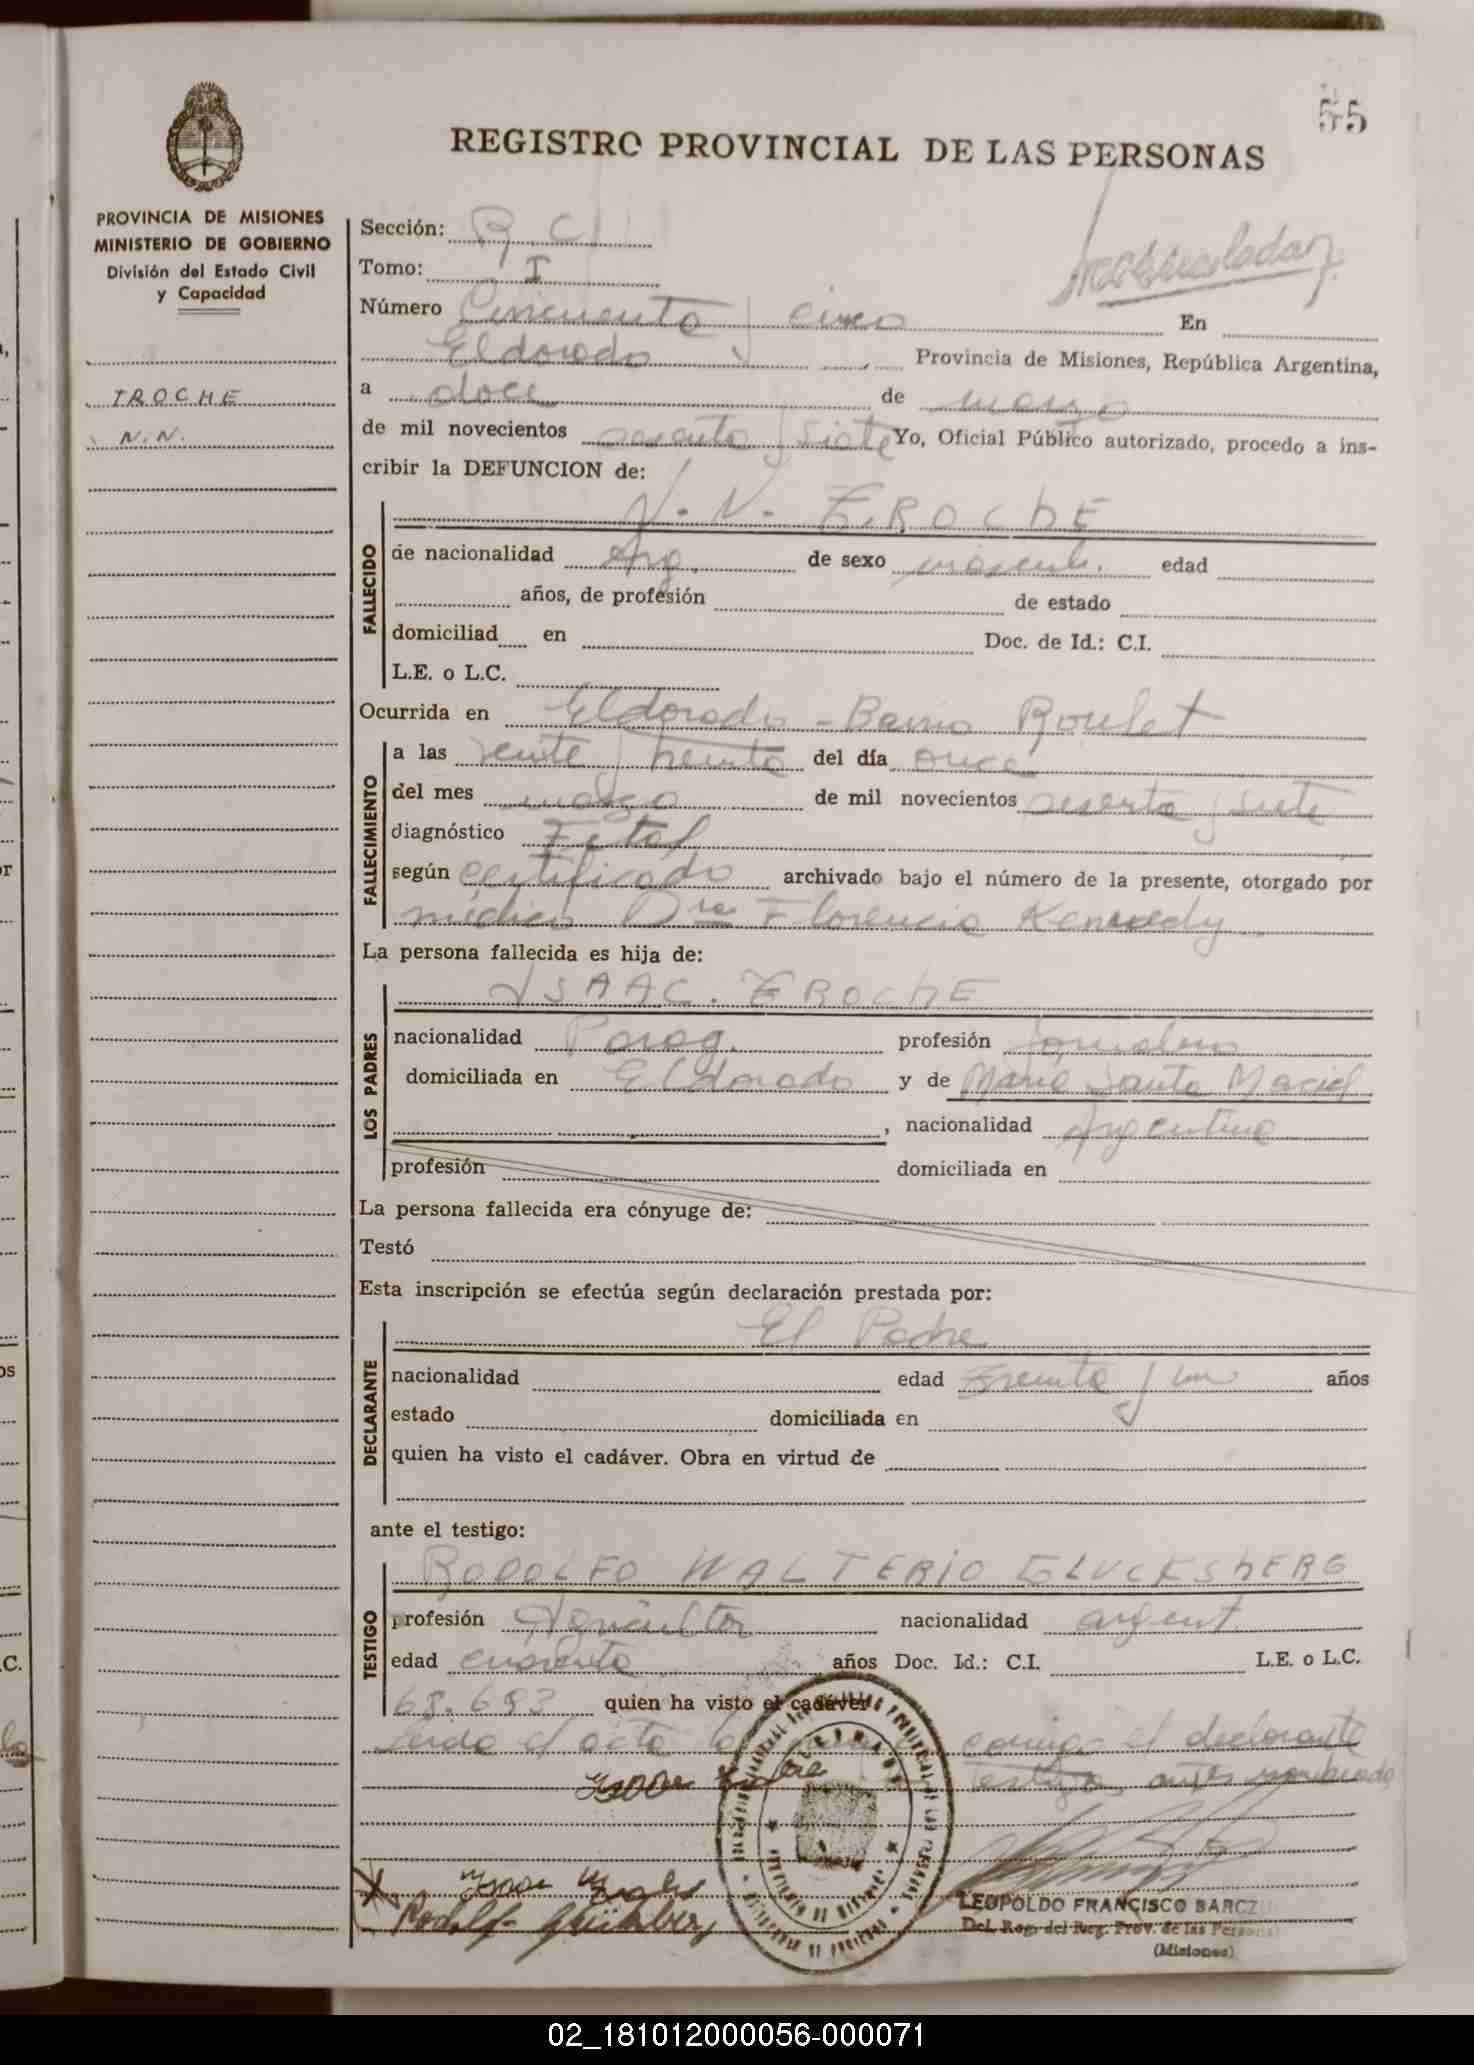 55
REGISTRO PROVINCIAL DE LAS PERSONAS
PROVINCIA DE MISIONES
MINISTERIO DE GOBIERNO
División del Estado Civil
y Capacidad
TROCHE
N.N.
Sección: R C
Tomo: I
Número Cincuenta y cinco En
Eldorado Provincia de Misiones, República Argentina,
a doce de marzo
de mil novecientos sesenta y siete Yo, Oficial Público autorizado, procedo a ins-
cribir la DEFUNCION de:
N. N. TROCHE
FALLECIDO
de nacionalidad Arg. de sexo mascul. edad
años, de profesión de estado
domiciliad en Doc. de Id.: C.I.
L.E. o L.C.
Ocurrida en Eldorado - Barrio Roulet
FALLECIMIENTO
a las veinte y treinta del día once
del mes marzo de mil novecientos sesenta y siete
diagnóstico Fetal
según certificado archivado bajo el número de la presente, otorgado por
médico Dra Florencia Kennedy
La persona fallecida es hija de:
ISAAC. TROCHE
LOS PADRES
nacionalidad Parag. profesión Jornalero
domiciliada en Eldorado y de María Santa Maciel
, nacionalidad Argentina
profesión domiciliada en
La persona fallecida era cónyuge de:
Testó
Esta inscripción se efectúa según declaración prestada por:
El Padre
DECLARANTE
nacionalidad edad treinta y un años
estado domiciliada en
quien ha visto el cadáver. Obra en virtud de
ante el testigo:
RODOLFO WALTERIO GLUCKSBERG
TESTIGO
profesión Agricultor nacionalidad argent.
edad cuarenta años Doc. Id.: C.I. L.E. o L.C.
quien ha visto el cadáver
Leida el acta la conmigo el declarante
testigo antes nombrado
LEOPOLDO FRANCISCO BARCZU
Del. Reg. del Reg. Prov. de las Personas
(Misiones)
02_181012000056-000071